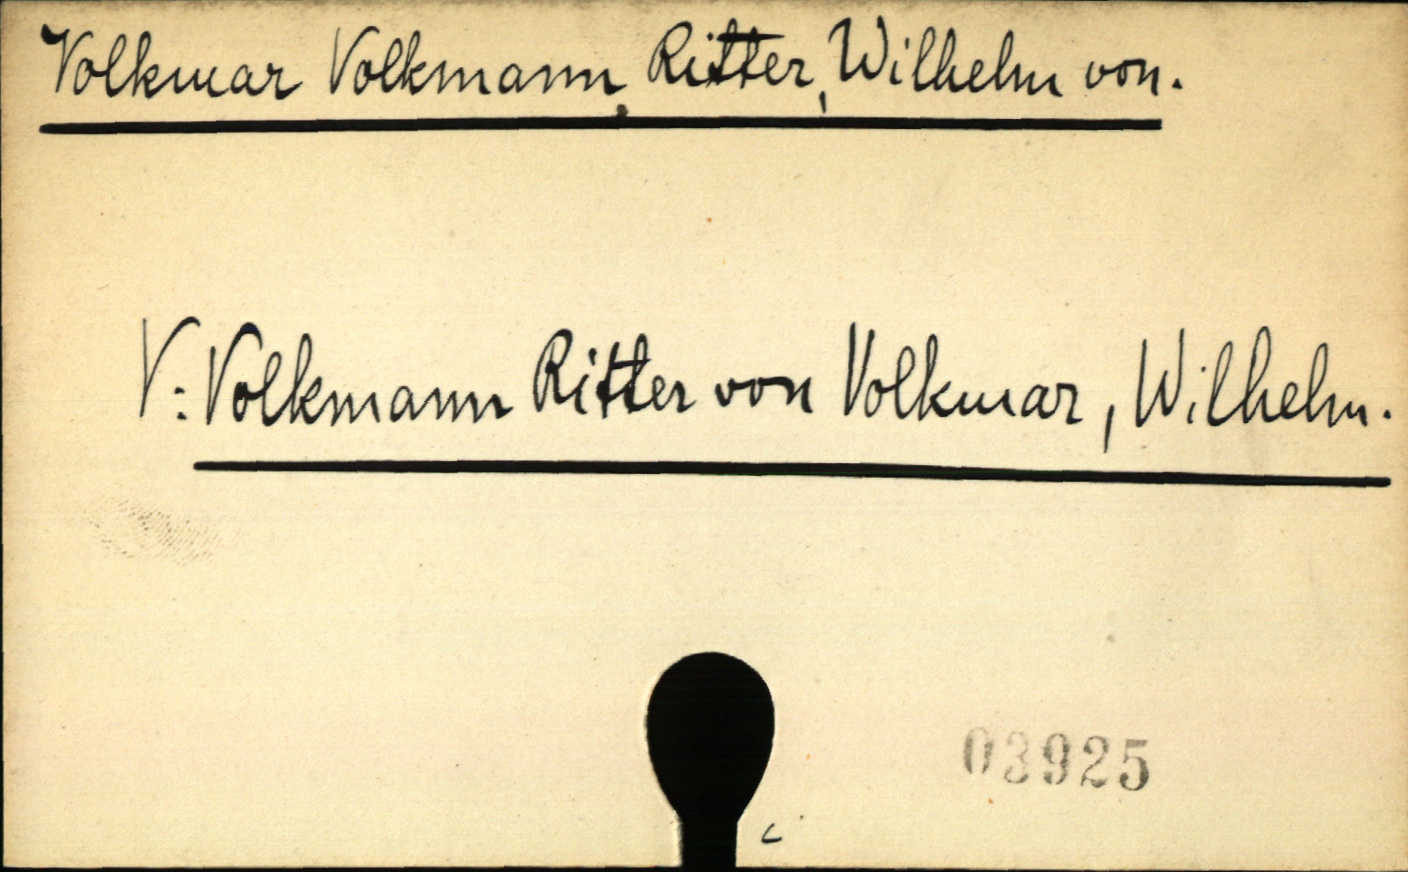 Volkmar Volkmann Ritter, Wilhelm von.
V: Volkmann Ritter von Volkmar, Wilhelm.
03925
c